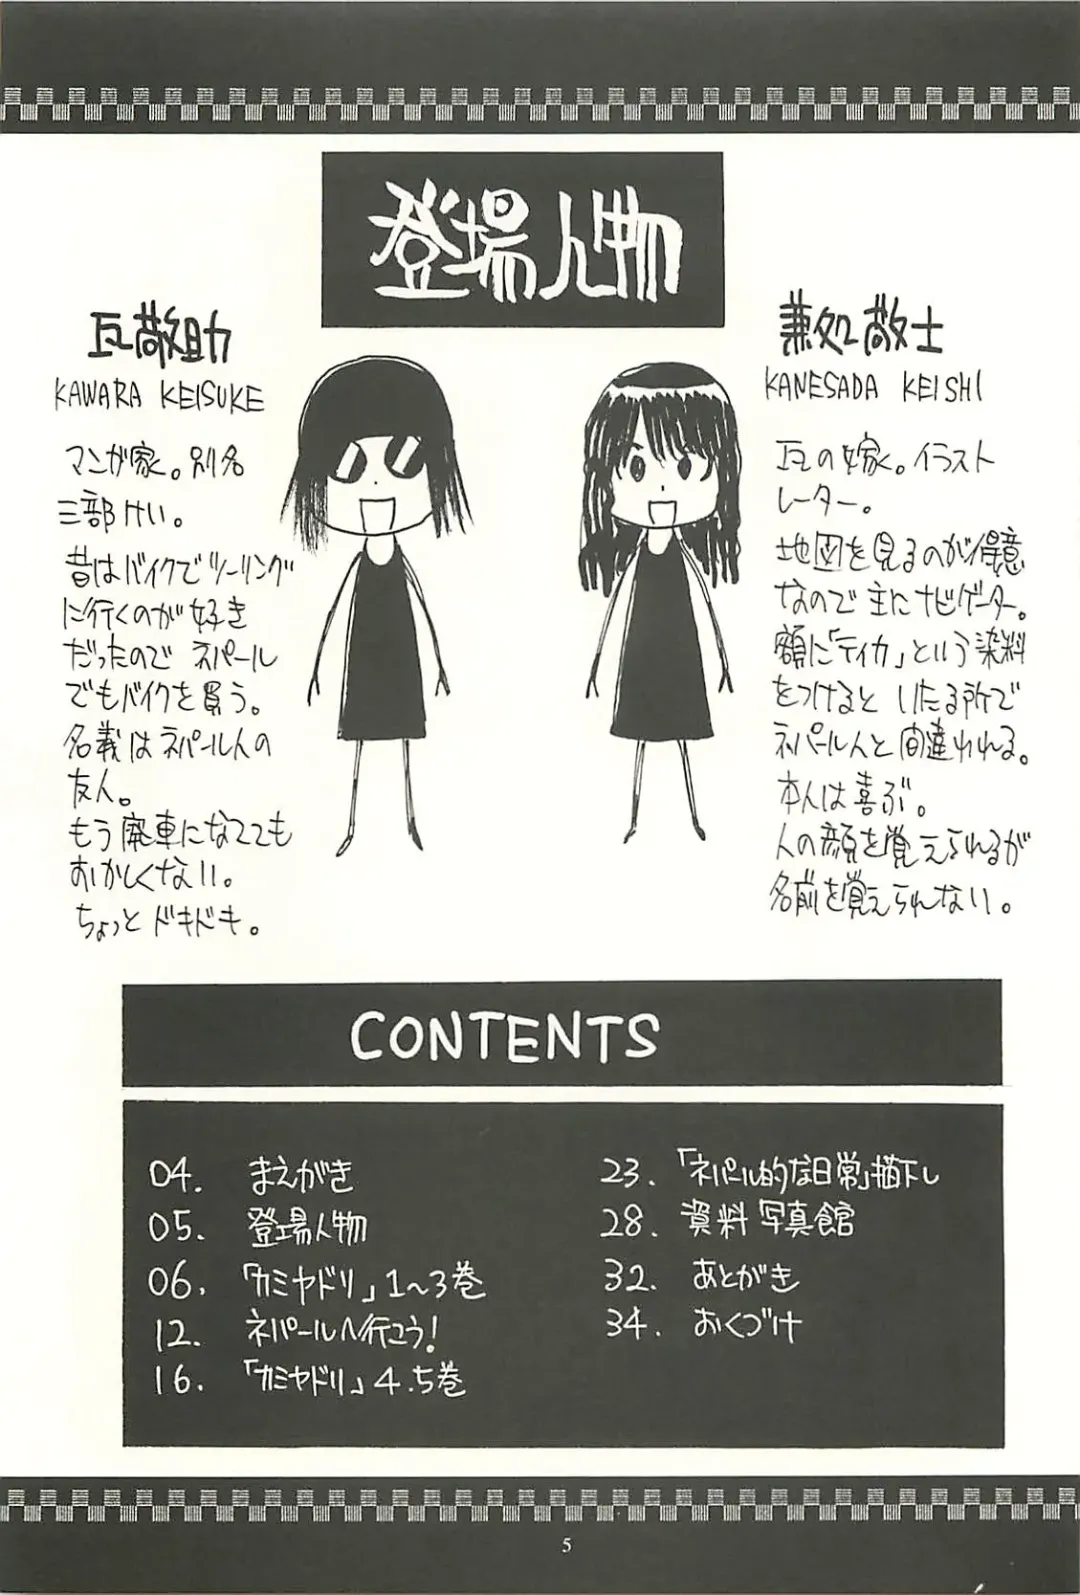 登場人物
瓦敬助
KAWARA KEISUKE
マンガ家。別名
三部けい。
昔はバイクでツーリング
に行くのが好き
だったのでネパール
でもバイクを買う。
名義はネパール人の
友人。
もう廃車になってても
おかしくない。
ちょっとドキドキ。
兼処敬士
KANESADA KEISHI
瓦の嫁。イラスト
レーター。
地図を見るのが得意
なので主にナビゲーター。
額に「ティカ」という染料
をつけるといたる所で
ネパール人と間違われる。
本人は喜ぶ。
人の顔を覚えられるが
名前を覚えられない。
CONTENTS
04. まえがき
05. 登場人物
06. 「カミヤドリ」1〜3巻
12. ネパールへ行こう!
16. 「カミヤドリ」4.5巻
23. 「ネパール的な日常」描下し
28. 資料写真館
32. あとがき
34. おくづけ
5